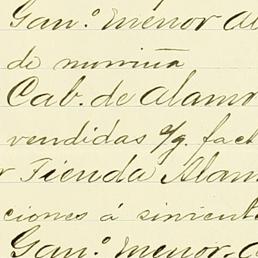 Gan.º menor Al
de murriña
Cab. de Alamo
vendidas s/g. fact
r Tienda Alam
ciones á sirvient
Gan.º menor. C